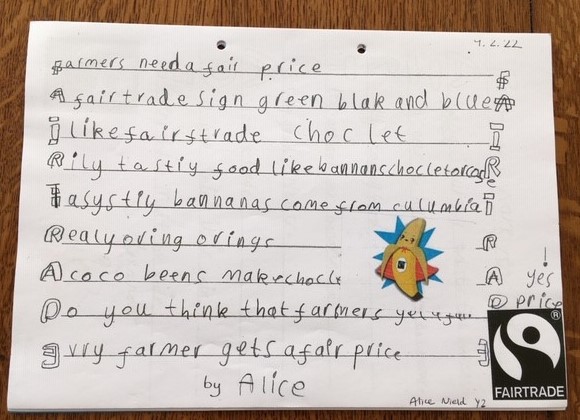 4.2.22
Farmers need a fair price F
A fairtrade sign green blak and blue A
I like fairstrade choclet I
Rily tastiy food like bannans choclet R
Tasystiy bannanas come from culumbia T
Realy oring orings R
A coco beens make chocle A yes!
Do you think that farmers D price
Evry farmer gets a fair price E
by Alice
Alice Nield Y2
®
FAIRTRADE